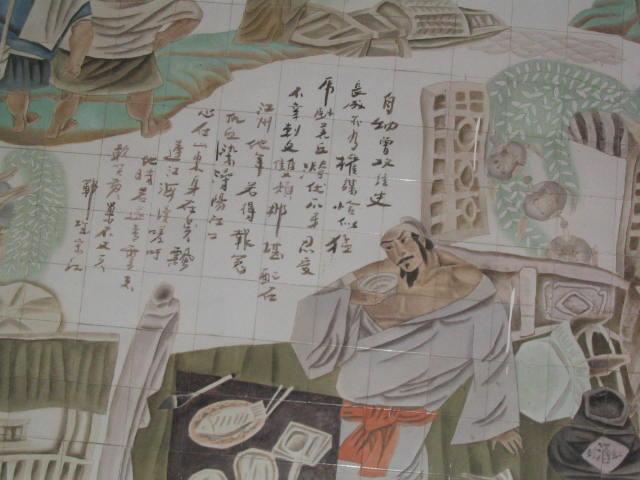 自幼曾攻经史
長成亦有權謀恰似猛
虎卧荒丘潜伏爪牙忍受
不幸刺文雙頰那堪配在
江州他年若得報冤
仇血染潯陽江口
心在山東身在吴飄
蓬江海謾嗟吁
他時若遂凌雲志
敢笑黄巢不丈夫
鄆城宋江
酒